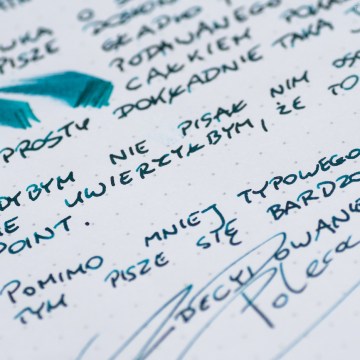 O S
UKA
PISZE
GŁADKO POKA
PODAWANEGO
CAŁKIEM
DOKŁADNIE TAKA
PROSTU
DYBYM NIE PISAŁ NIM OSO
IE UWIERZYŁBYM, ŻE TO
POINT.
POMIMO MNIEJ TYPOWEGO
TYM PISZE SIĘ BARDZO
ZDECYDOWANIE
Polecam